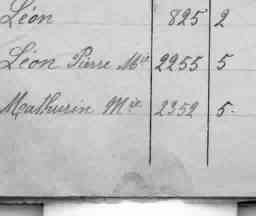 Léon 825 2
Léon Pierre Mie 2255 5
Mathurin Mie 2352 5.